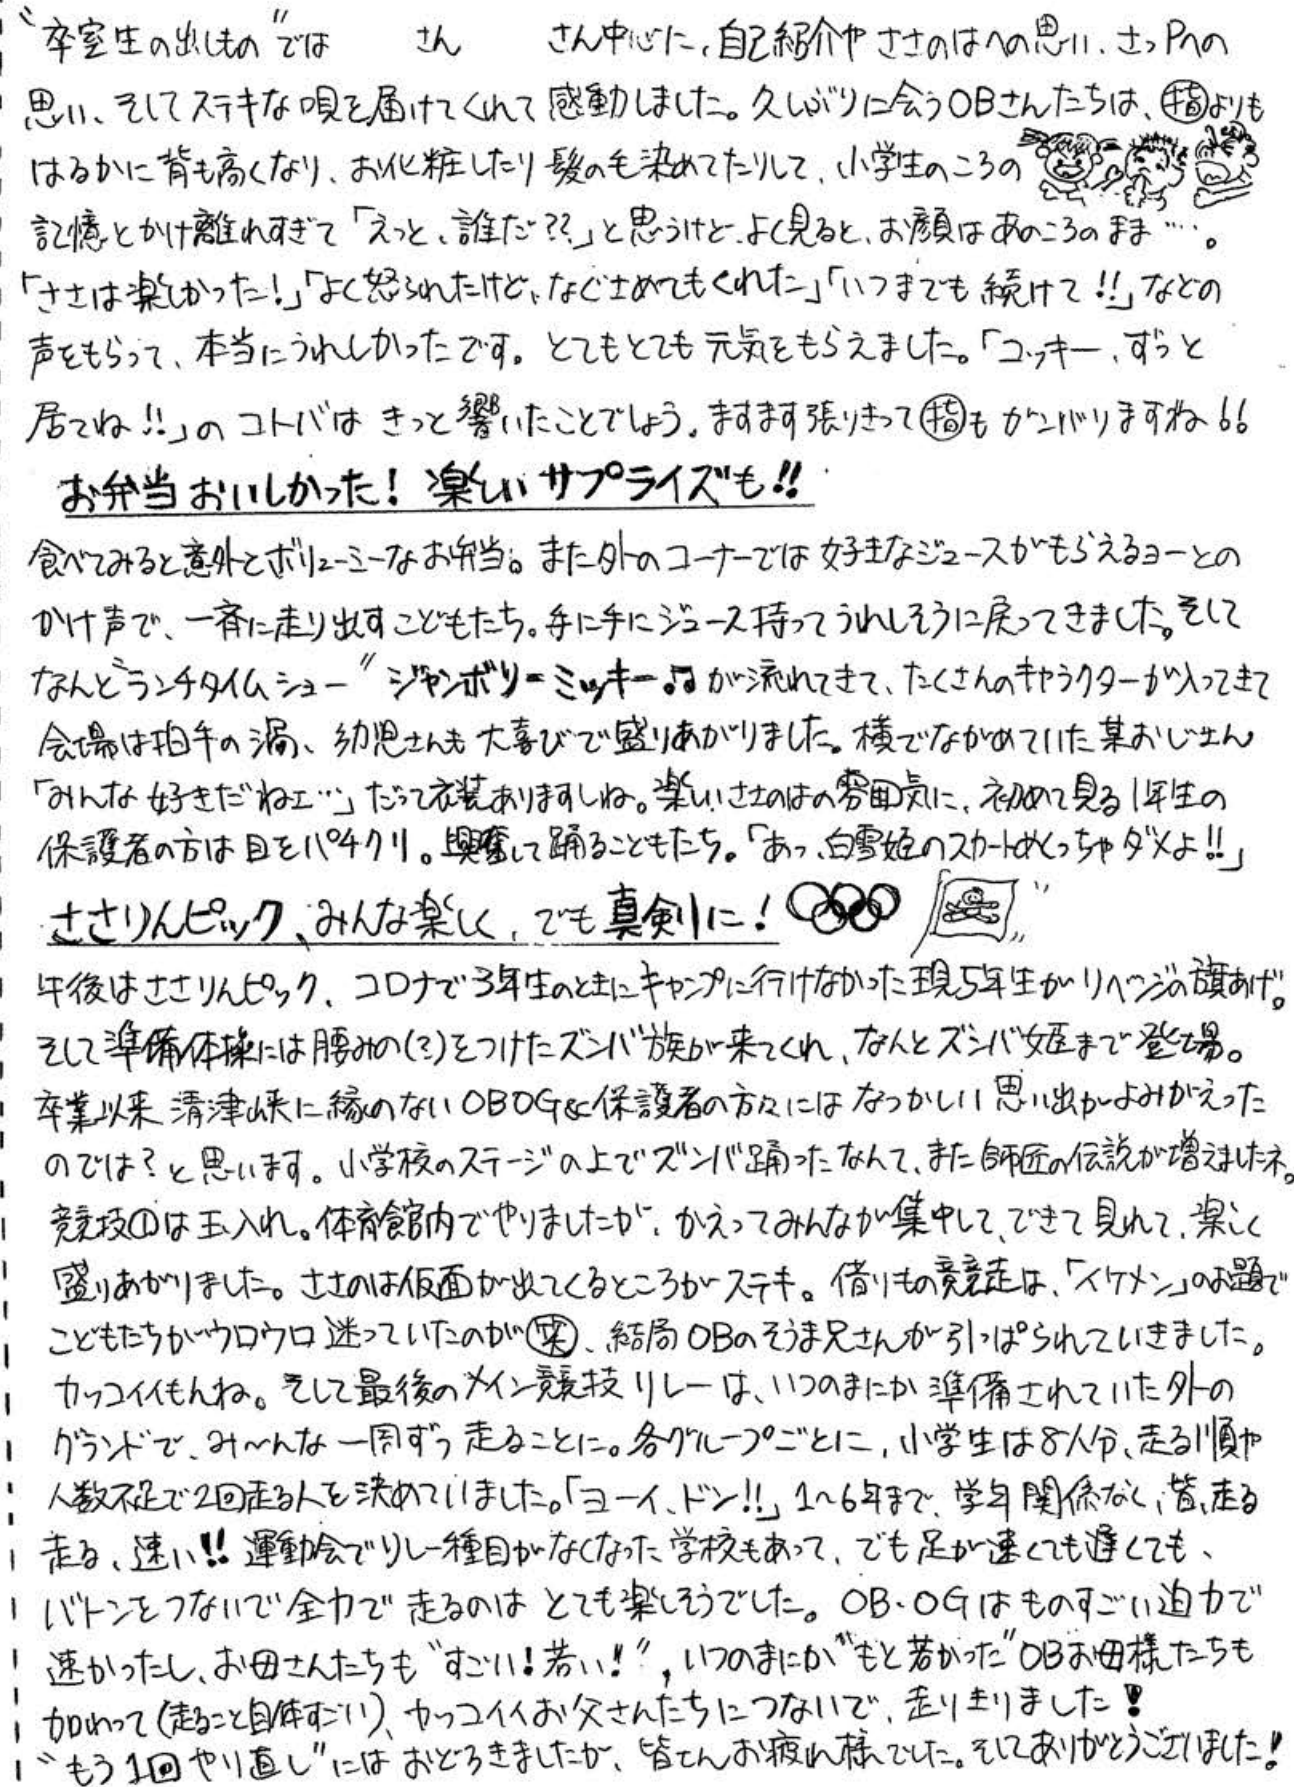 “卒室生の出しもの”では　　さん　　さん中心に、自己紹介やささのはへの思い、さっPへの
思い、そしてステキな唄を届けてくれて感動しました。久しぶりに会うOBさんたちは、㊟よりも
はるかに背も高くなり、お化粧したり髪の毛染めてたりして、小学生のころの
記憶とかけ離れすぎて「えっと、誰だ??」と思うけど、よく見ると、お顔はあのころのまま…。
「ささは楽しかった!」「よく怒られたけど、なぐさめてもくれた」「いつまでも続けて!!」などの
声をもらって、本当にうれしかったです。とてもとても元気をもらえました。「コッキー、ずっと
居てね!!」のコトバはきっと響いたことでしょう。ますます張りきって指もガンバりますね!!
お弁当おいしかった! 楽しいサプライズも!!
食べてみると意外とボリューミーなお弁当。また外のコーナーでは好きなジュースがもらえるヨーとの
かけ声で、一斉に走り出すこどもたち。手に手にジュース持ってうれしそうに戻ってきました。そして
なんと“ランチタイムショー”ジャンボリーミッキー♫が流れてきて、たくさんのキャラクターが入ってきて
会場は拍手の渦、幼児さんも大喜びで盛りあがりました。横でながめていた某おじさん
「みんな好きだねェ…」だって衣装ありますしね。楽しいささのはの雰囲気に、初めて見る1年生の
保護者の方は目をパチクリ。興奮して踊るこどもたち。「あっ、白雪姫のスカートめくっちゃダメよ!!」
ささりんピック、みんな楽しく、でも真剣に!
午後はささりんピック、コロナで3年生のときにキャンプに行けなかった現5年生がリベンジの旗あげ。
そして準備体操には腰みの(?)をつけたズンバ族が来てくれ、なんとズンバ姫まで登場。
卒業以来清津峡に縁のないOBOG&保護者の方々にはなつかしい思い出がよみがえった
のでは?と思います。小学校のステージの上でズンバ踊ったなんて、また師匠の伝説が増えましたネ。
競技①は玉入れ。体育館内でやりましたが、かえってみんなが集中して、できて見れて、楽しく
盛りあがりました。ささのは仮面が出てくるところがステキ。借りもの競走は、「イケメン」のお題で
こどもたちがウロウロ迷っていたのが㊥、結局OBのそうま兄さんが引っぱられていきました。
カッコイイもんね。そして最後のメイン競技リレーは、いつのまにか準備されていた外の
グランドで、み～んな一周ずつ走ることに。各グループごとに、小学生は8人分、走る順や
人数不足で2回走る人を決めていました。「ヨーイ、ドン!!」1～6年まで、学年関係なく、皆、走る
走る、速い!! 運動会でリレー種目がなくなった学校もあって、でも足が速くても遅くても、
バトンをつないで全力で走るのはとても楽しそうでした。OB・OGはものすごい迫力で
速かったし、お母さんたちも“すごい!若い!”、いつのまにか“もと若かった”OBお母様たちも
加わって(走ること自体すごい)、カッコイイお父さんたちにつないで、走りきりました!
“もう1回やり直し”にはおどろきましたが、皆さんお疲れ様でした。そしてありがとうございました!